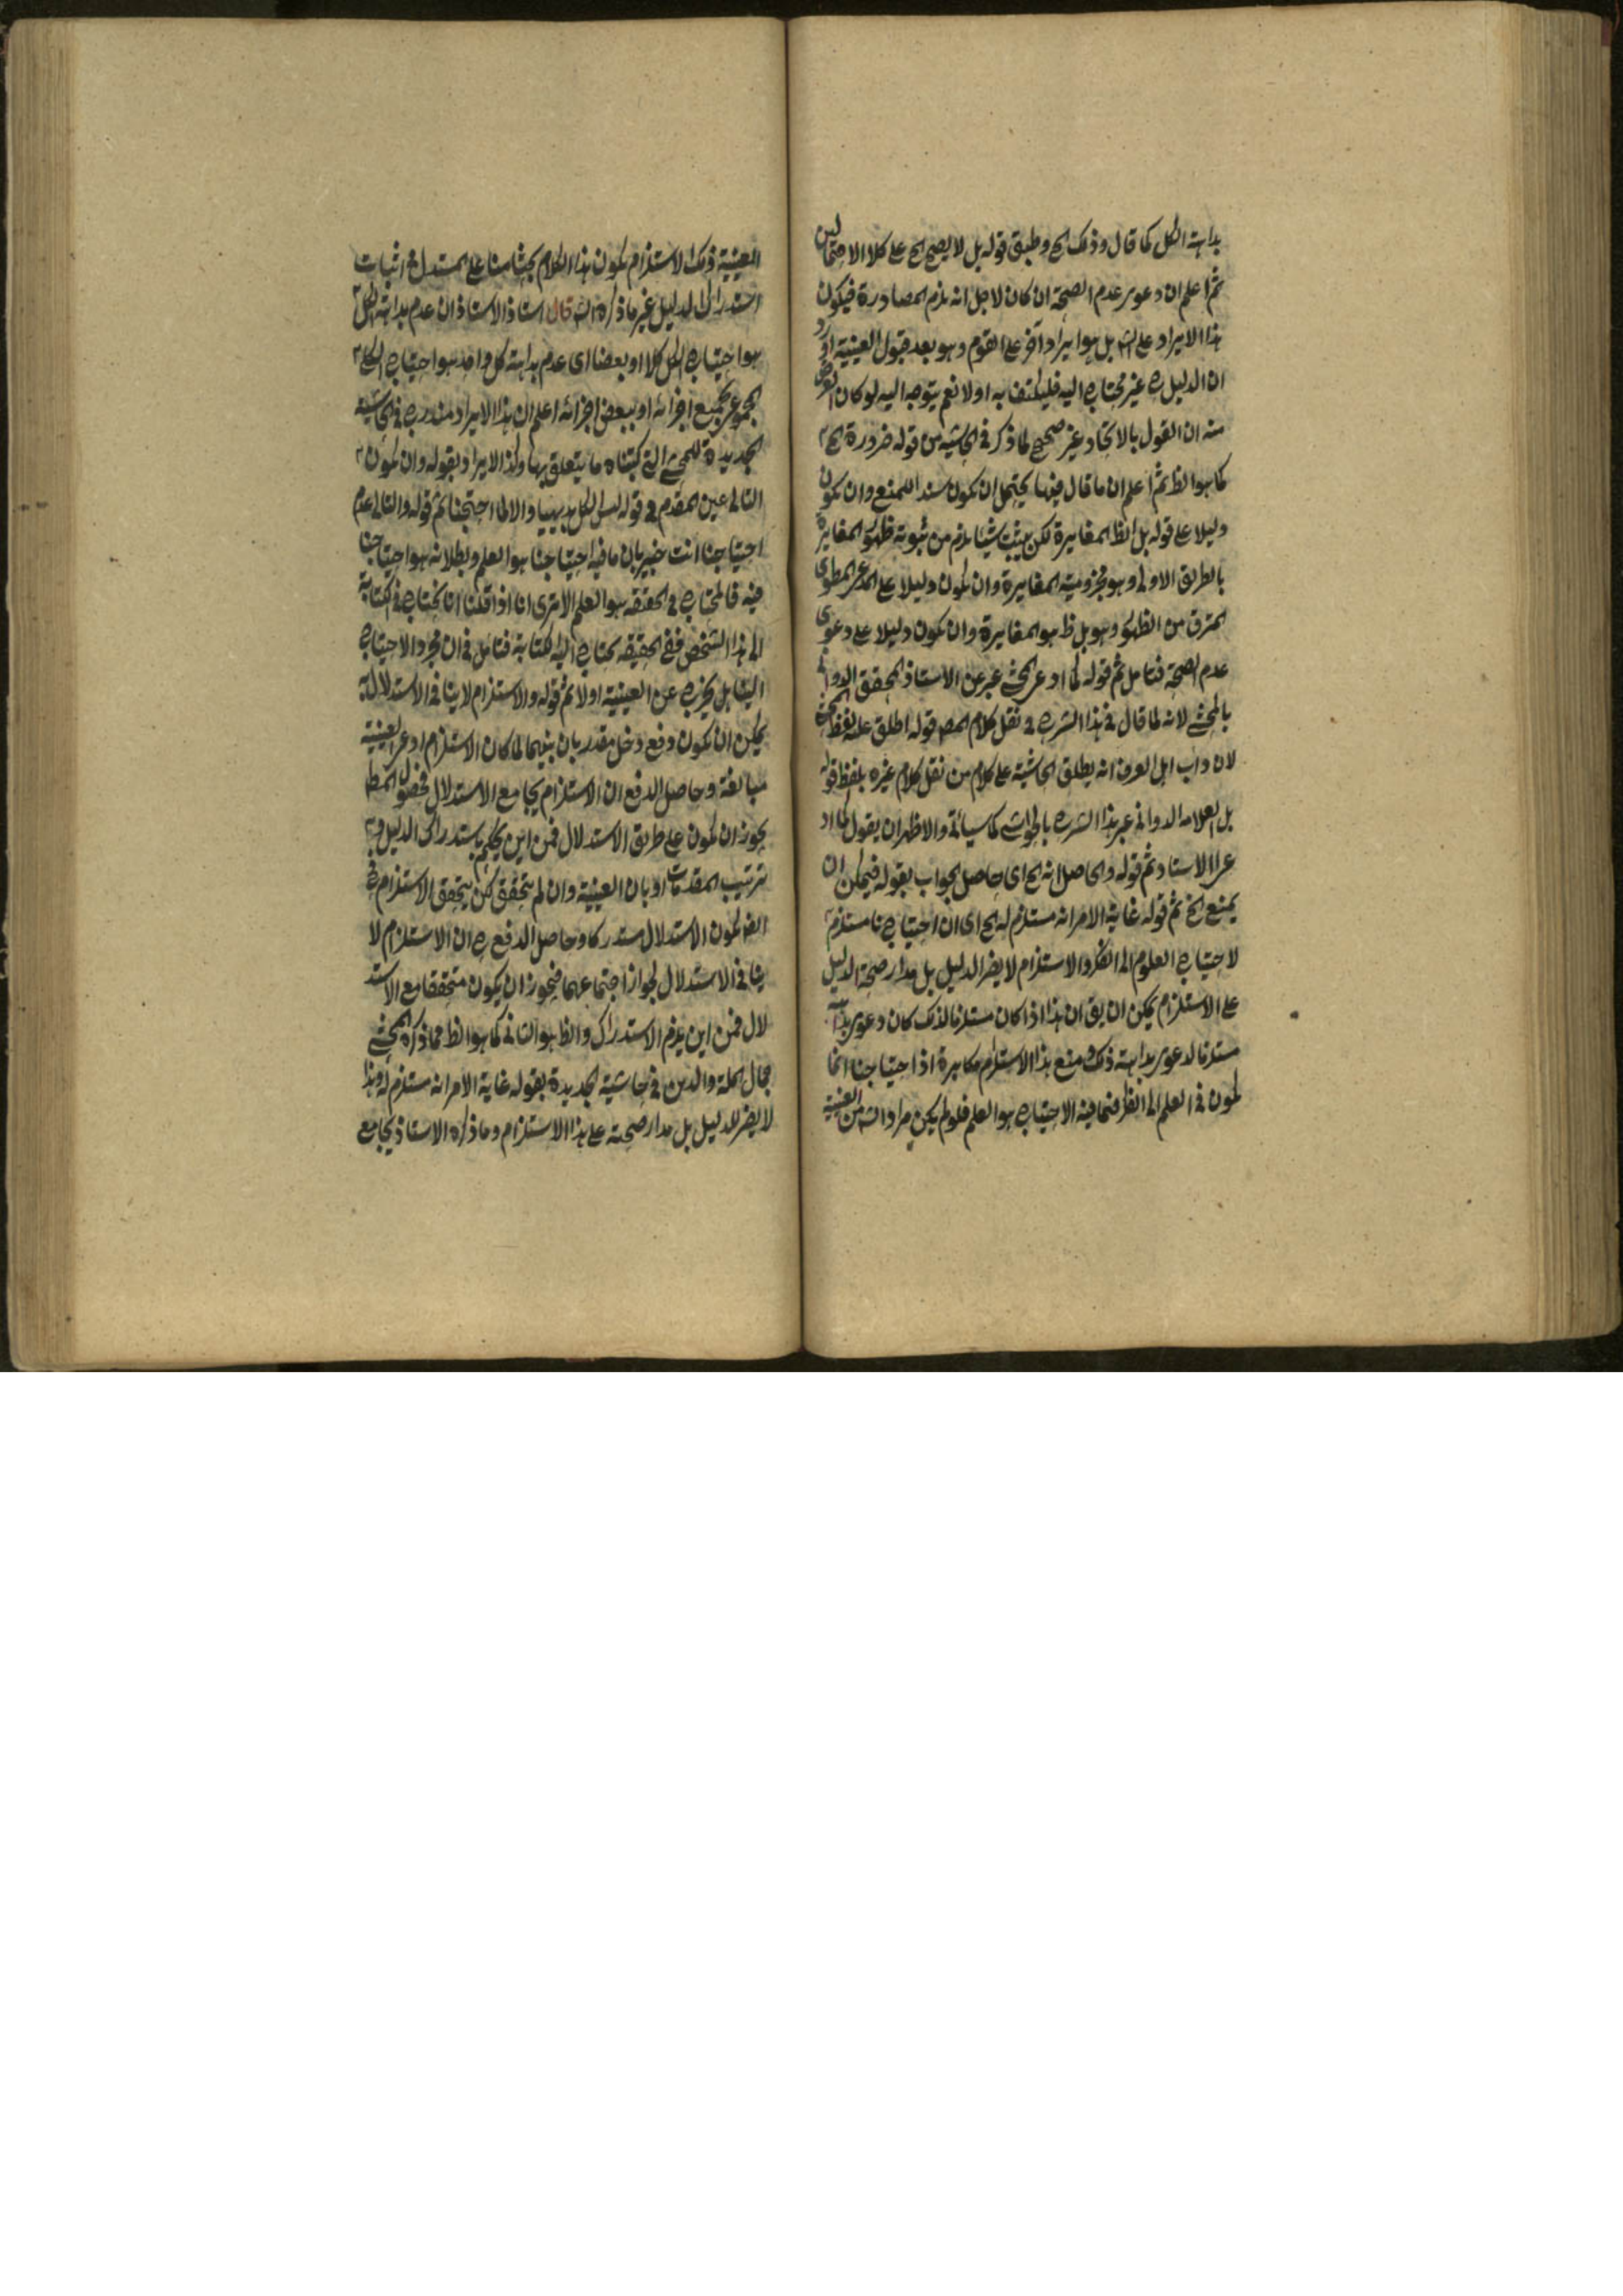 بداهة الكل كما قال وذلك الخ وطبق قوله بل لا يصح الخ على كلا الاحتمالين
ثم اعلم ان دعوى عدم الصحة ان كان لاجل انه يلزم المصادرة فيكون
هذا الايراد على الشه بل هو ايراد آخر على القوم وهو بعد قبول العينية اورد
ان الدليل ح غير محتاج اليه فليكتف به اولا نعم يتوجه اليه لو كان الغرض
منه ان القول بالاتحاد غير صحيح لما ذكر في الحاشية من قوله ضرورة الخ
كما هو الظ ثم اعلم ان ما قال فيها يحتمل ان يكون سندا للمنع وان يكون
دليلا على قوله بل الظ المغايرة لكن يثبت شيئا يلزم من ثبوته ظهور المغايرة
بالطريق الاولى وهو مجزومية المغايرة وان يكون دليلا على المدعى المطوى
المترقى من الظهور وهو بل ظ هو المغايرة وان يكون دليلا على دعوى
عدم الصحة فتامل ثم قوله لما ادعى المحشى عبر عن الاستاذ المحقق الدوانى
بالمحشى لانه لما قال في هذا الشرح في نقل كلام المص قوله اطلق عليه لفظ المحشى
لان داب اهل العرف انه يطلق الحاشية على كلام من نقل كلام غيره بلفظ قوله
بل العلامه الدوانى عبر هذا الشرح بالحواشى كما سيأتى والاظهر ان يقول كما اد
عى الاستاد ثم قوله والحاصل انه الخ اى حاصل الجواب بقوله فيمكن ان
يمنع الخ ثم قوله غاية الامر انه مستلزم له الخ اى ان احتياجنا مستلزم
لاحتياج العلوم الى الفكر والاستلزام لا يضر الدليل بل مدار صحة الدليل
على الاستلزام يمكن ان يق ان هذا اذا كان مستلزما لذلك كان دعوى بداهته
مستلزما لدعوى بداهته ذلك ومنع هذا الاستلزام مكابرة اذ احتياجنا انما
يكون في العلم الى الفكر فما فيه الاحتياج هو العلم فلو لم يكن مراد الشه من العينية
العينية ذلك الاستلزام يكون هذا الكلام بحثا منا على المستدل في اثبات
استدراك الدليل غير ما ذكره الشه قال استاذ الاستاذ ان عدم بداهة الكل
هو احتياج الكل كلا او بعضا اى عدم بداهة كل واحد هو احتياج الكل
المجموعى بجميع اجزائه او ببعض اجزائه اعلم ان هذا الايراد مندرج في الحاشية
الجديدة للمحشى التي كتبناه ما يتعلق بها وكذا الايراد بقوله وان يكون
التالى عين المقدم في قوله ليس الكل بديهيا والا لما احتجنا ثم قوله والتالى عدم
احتياجنا انت خبير بان ما فيه احتياجنا هو العلم وبطلانه هو احتياجنا
فيه فالمحتاج في الحقيقه هو العلم الا ترى انا اذا قلنا انا نحتاج في الكتابة
الى هذا الشخص ففي الحقيقه يحتاج اليه الكتابة فتامل في ان مجرد الاحتياج
الينا بل يخرج عن العينية اولا ثم قوله والاستلزام لا ينافى الاستدلال به
يمكن ان يكون دفع دخل مقدر بان بينهما لما كان الاستلزام ادعى العينية
مبالغة وحاصل الدفع ان الاستلزام يجامع الاستدلال فحصول المط
يجوز ان يكون على طريق الاستدلال فمن اين يحكم باستدراك الدليل و
ترتيب المقدمات او بان العينية وان لم يتحقق لكن يتحقق الاستلزام في
الفه يكون الاستدلال مستدركا وحاصل الدفع ح ان الاستلزام لا
ينافى الاستدلال لجواز اجتماعهما فيجوز ان يكون متحققا مع الاستد
لال فمن اين يلزم الاستدراك والظ هو الثانى كما هو الظ مما ذكره المحشى
جمال الملة والدين في حاشية الجديدة بقوله غاية الامر انه مستلزم له وهذا
لا يضر للدليل بل مدار صحته على هذا الاستلزام وما ذكره الاستاذ يجامع